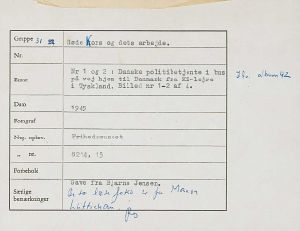 Gruppe 31 Røde Kors og dets arbejde.
Nr.
Emne Nr 1 og 2 : Danske politibetjente i bus
på vej hjem til Danmark fra KZ-lejre
i Tyskland. Billed nr 1-2 af 4.
Se album 42
Dato 1945
Fotograf
Neg. opbev. Frihedsmuseet
„ nr. 8214, 15
Forbehold
Særlige bemærkninger Gave fra Bjarne Jensen.